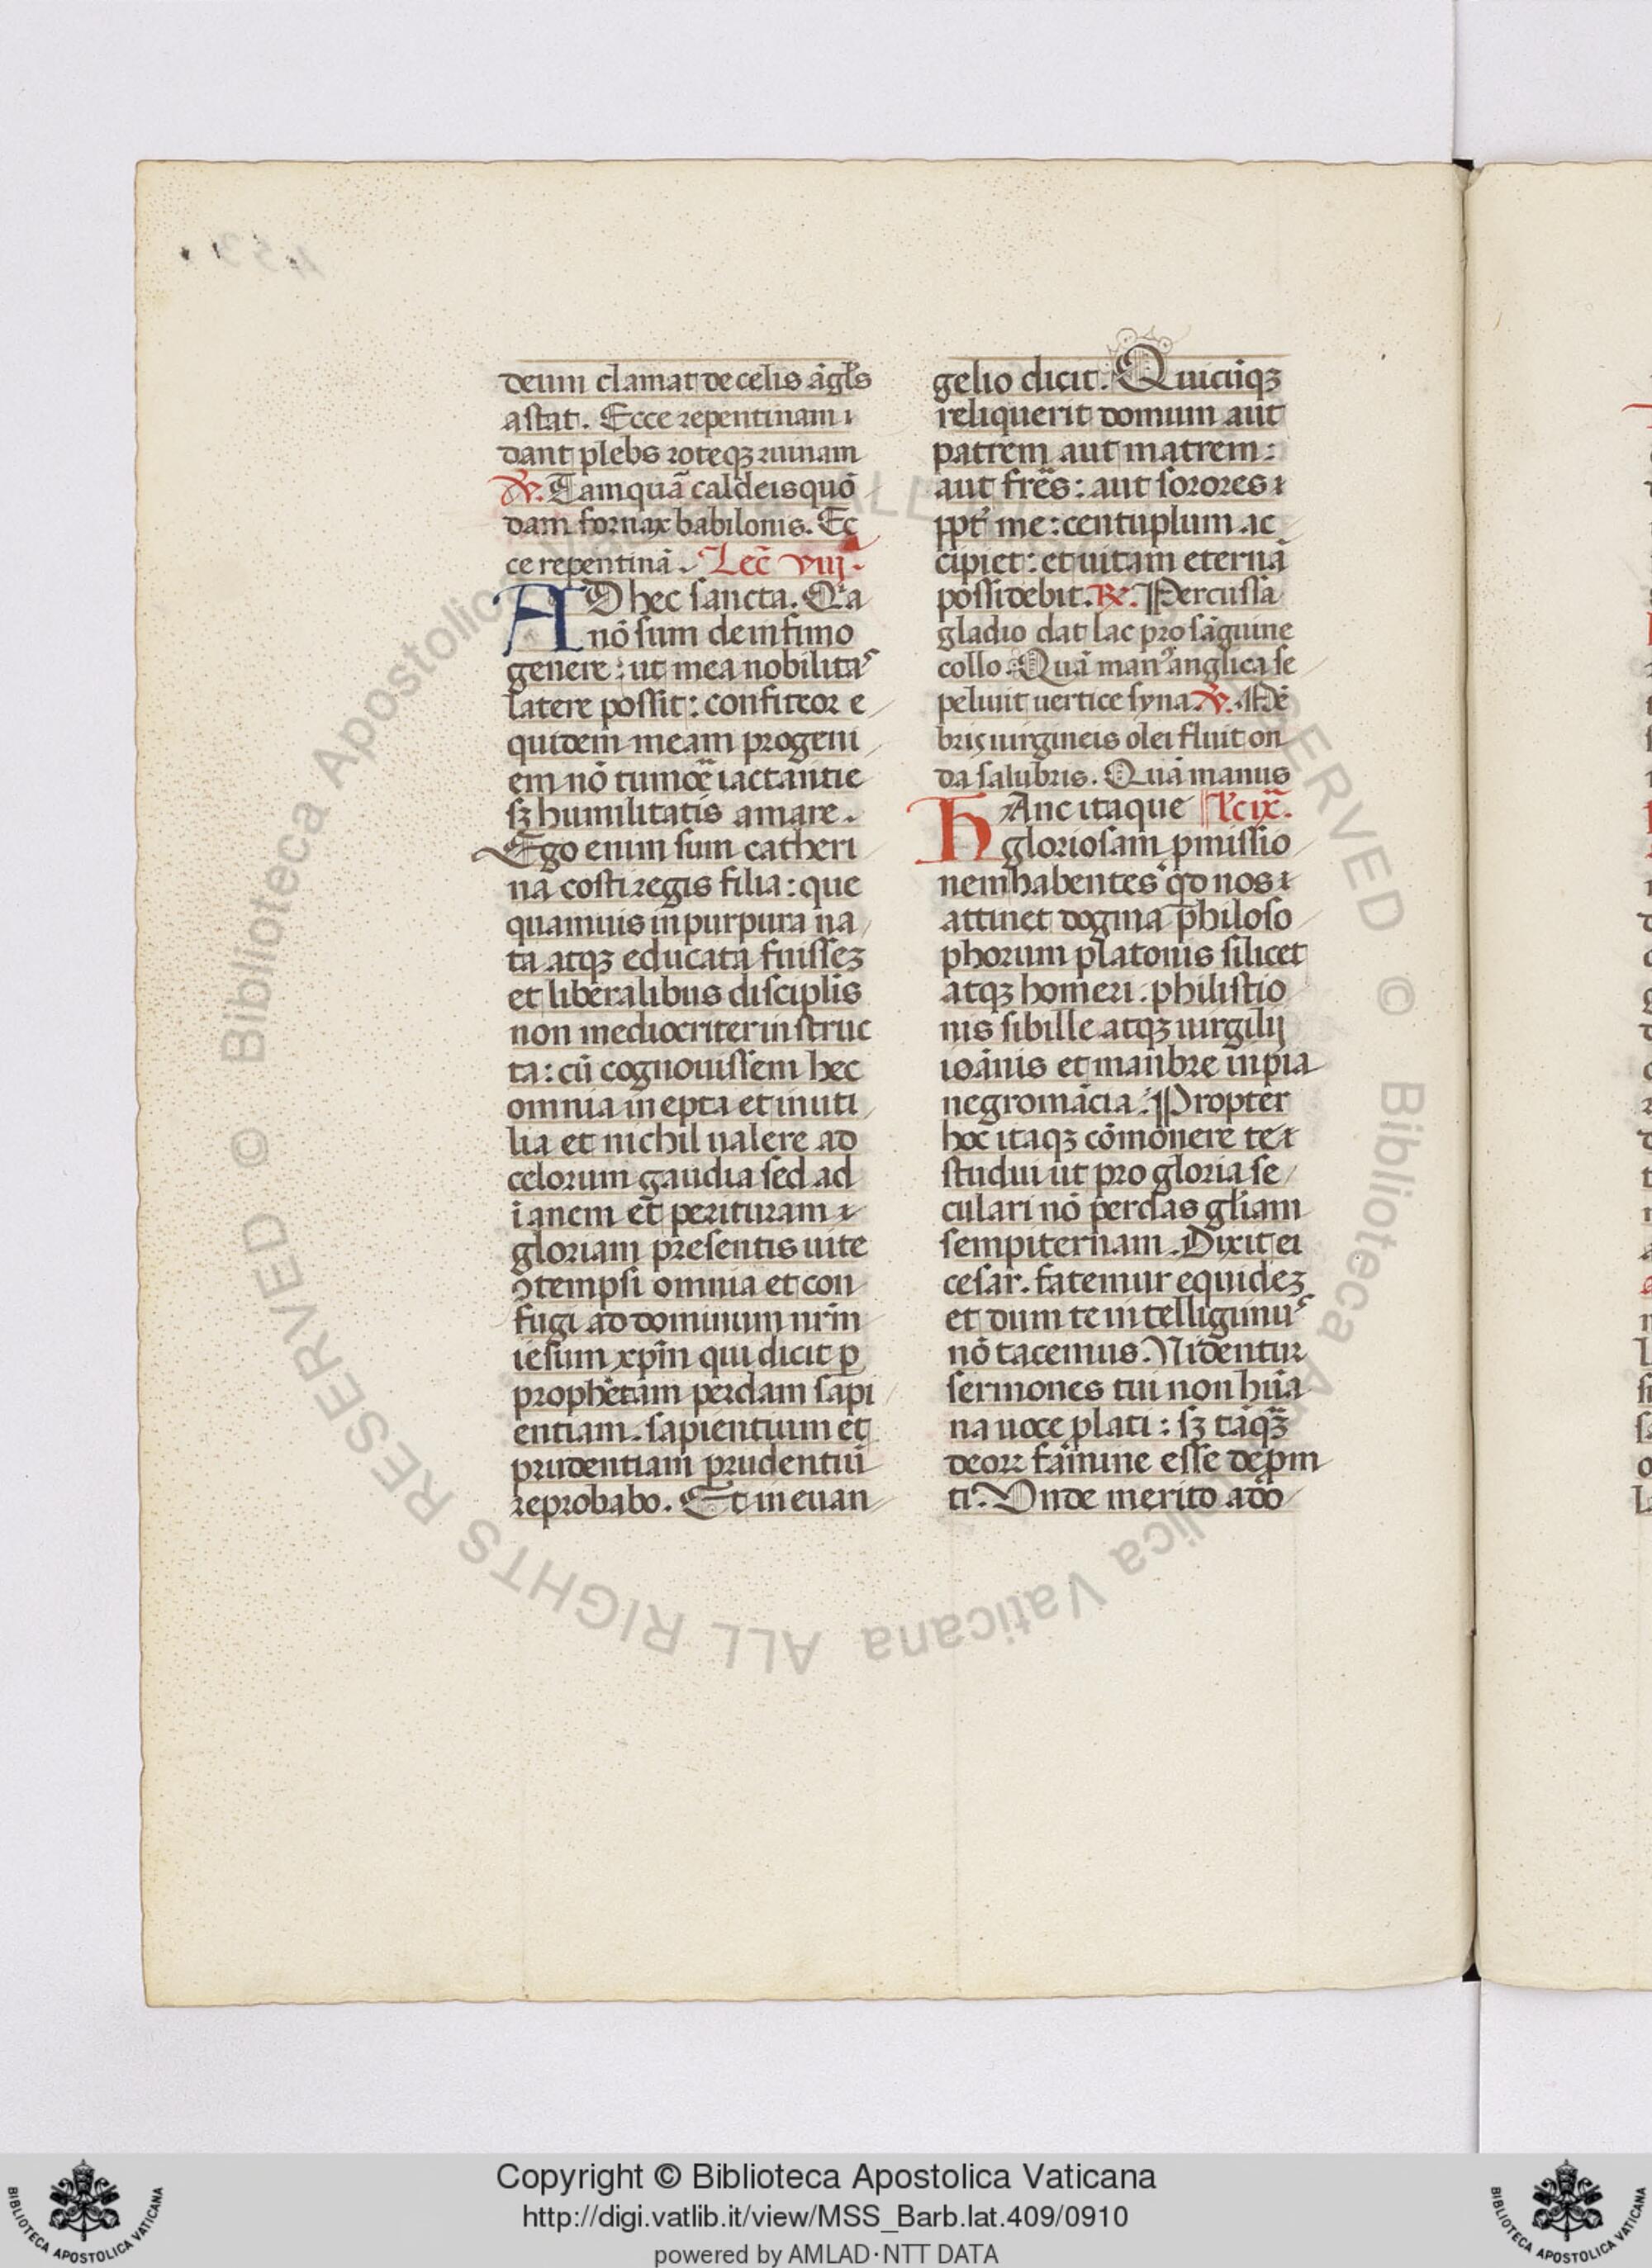 deum clamat de celis āgl̄s
astat. Ecce repentinam ı
dant plebs roteqꝫ ruinam
℣. Tamquā caldeis quō
dam fornax babilonis. Ec
ce repentinā. Lec̄ viij.
AD hec sancta. Qͣa
nō sum de infimo
genere : ut mea nobilitaˢ
latere possit : confiteor e
quidem meam progeni
em nō tumoꝝ̄ iactantie
sꝫ humilitatis amare.
Ego enim sum catheri
na costi regis filia : que
quamuis in purpura na
ta atqꝫ educata fuisseꝫ
et liberalibus disciplis
non mediocriter in struc
ta : cū cognouissem hec
omnia in epta et inuti
lia et nichil ualere ad
celorum gaudia sed ad
īanem et̄ perituram ı
gloriam presentis uite
ꝯtempsi omnia et con
fugi ad dominum nrm̄
iesum xpm̄ qui dicit p̱
prophetam perdam sapi
entiam. sapientium et
prudentiam prudentiū
reprobabo. Et in euan
gelio dicit. Quicūqꝫ
reliquerit domum aut
patrem aut matrem :
aut frēs : aut sorores ı
ꝓpt̄ me : centuplum ac
cipiet : et uitam eternā
possidebit. ℟. Percussa
gladio dat lac pro sāguine
collo. Quā manꝰ anglica se
peliuit uertice syna. ℣. Mē
bris uirgineis olei fluit on
da salubris. Quā manus
HAnc itaque Lc̄ ix.
gloriosam ꝓmissio
nem habentes qd̄ nos ı
attinet dogma philoso
phorum platonis silicet
atqꝫ homeri. philistio
nis sibille atqꝫ uirgilij
ioānis et manbre inpia
negromācia. Propter
hoc itaqꝫ cōmonere te ı
studui ut pro gloria se
culari nō perdas gl̄iam
sempiternam. Dixit ei
cesar. fatemur equideꝫ
et dum te in telligimuˢ
nō tacemus. Nidentur
sermones tui non hūa
na uoce plati : sꝫ tāqꝫ̄
deoꝝ famine esse deꝓm
ti. Vnde merito ado
Copyright © Biblioteca Apostolica Vaticana
http://digi.vatlib.it/view/MSS_Barb.lat.409/0910
powered by AMLAD·NTT DATA
BIBLIOTECA APOSTOLICA VATICANA
BIBLIOTECA APOSTOLICA VATICANA
© Biblioteca Apostolica Vaticana ALL RIGHTS RESERVED © Biblioteca Apostolica Vaticana ALL RIGHTS RESERVED